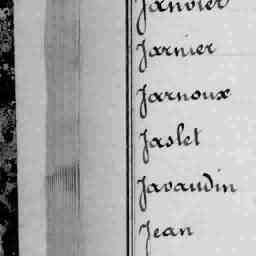 Janvier
Jarnier
Jarnoux
Jaslet
Javaudin
Jean